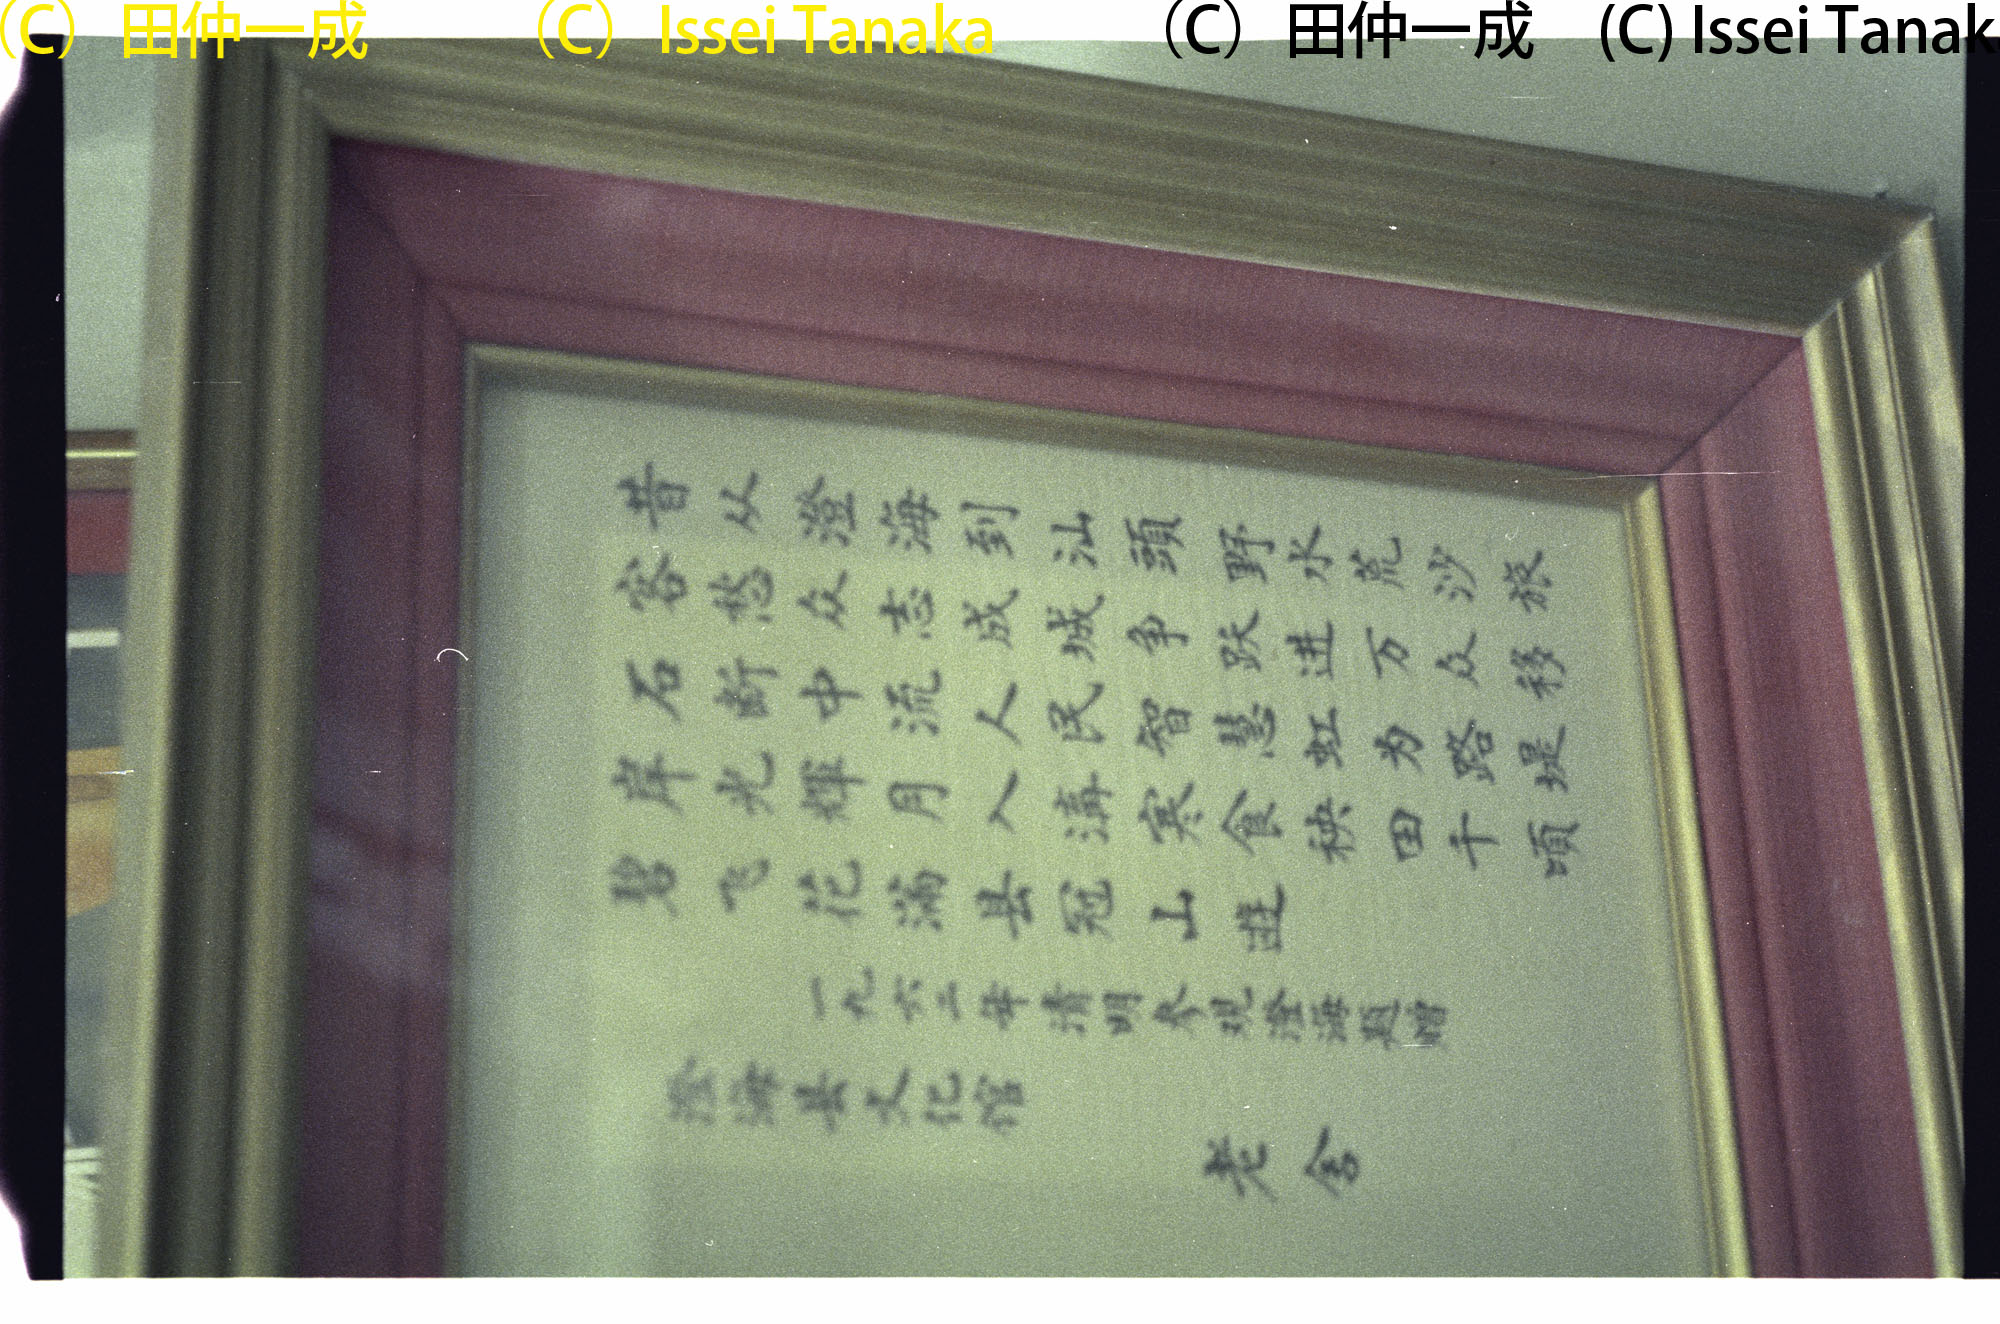 (C) 田仲一成 (C) Issei Tanaka (C) 田仲一成 (C) Issei Tanak
昔从澄海到汕頭野水荒沙旅
客愁众志成城争跃进万众移
石断中流人民智慧虹为路堤
岸光輝月入溝寒食秧田千頃
碧飞花滿县冠山遊
一九六二年清明参观澄海題贈
澄海县文化馆
老舍